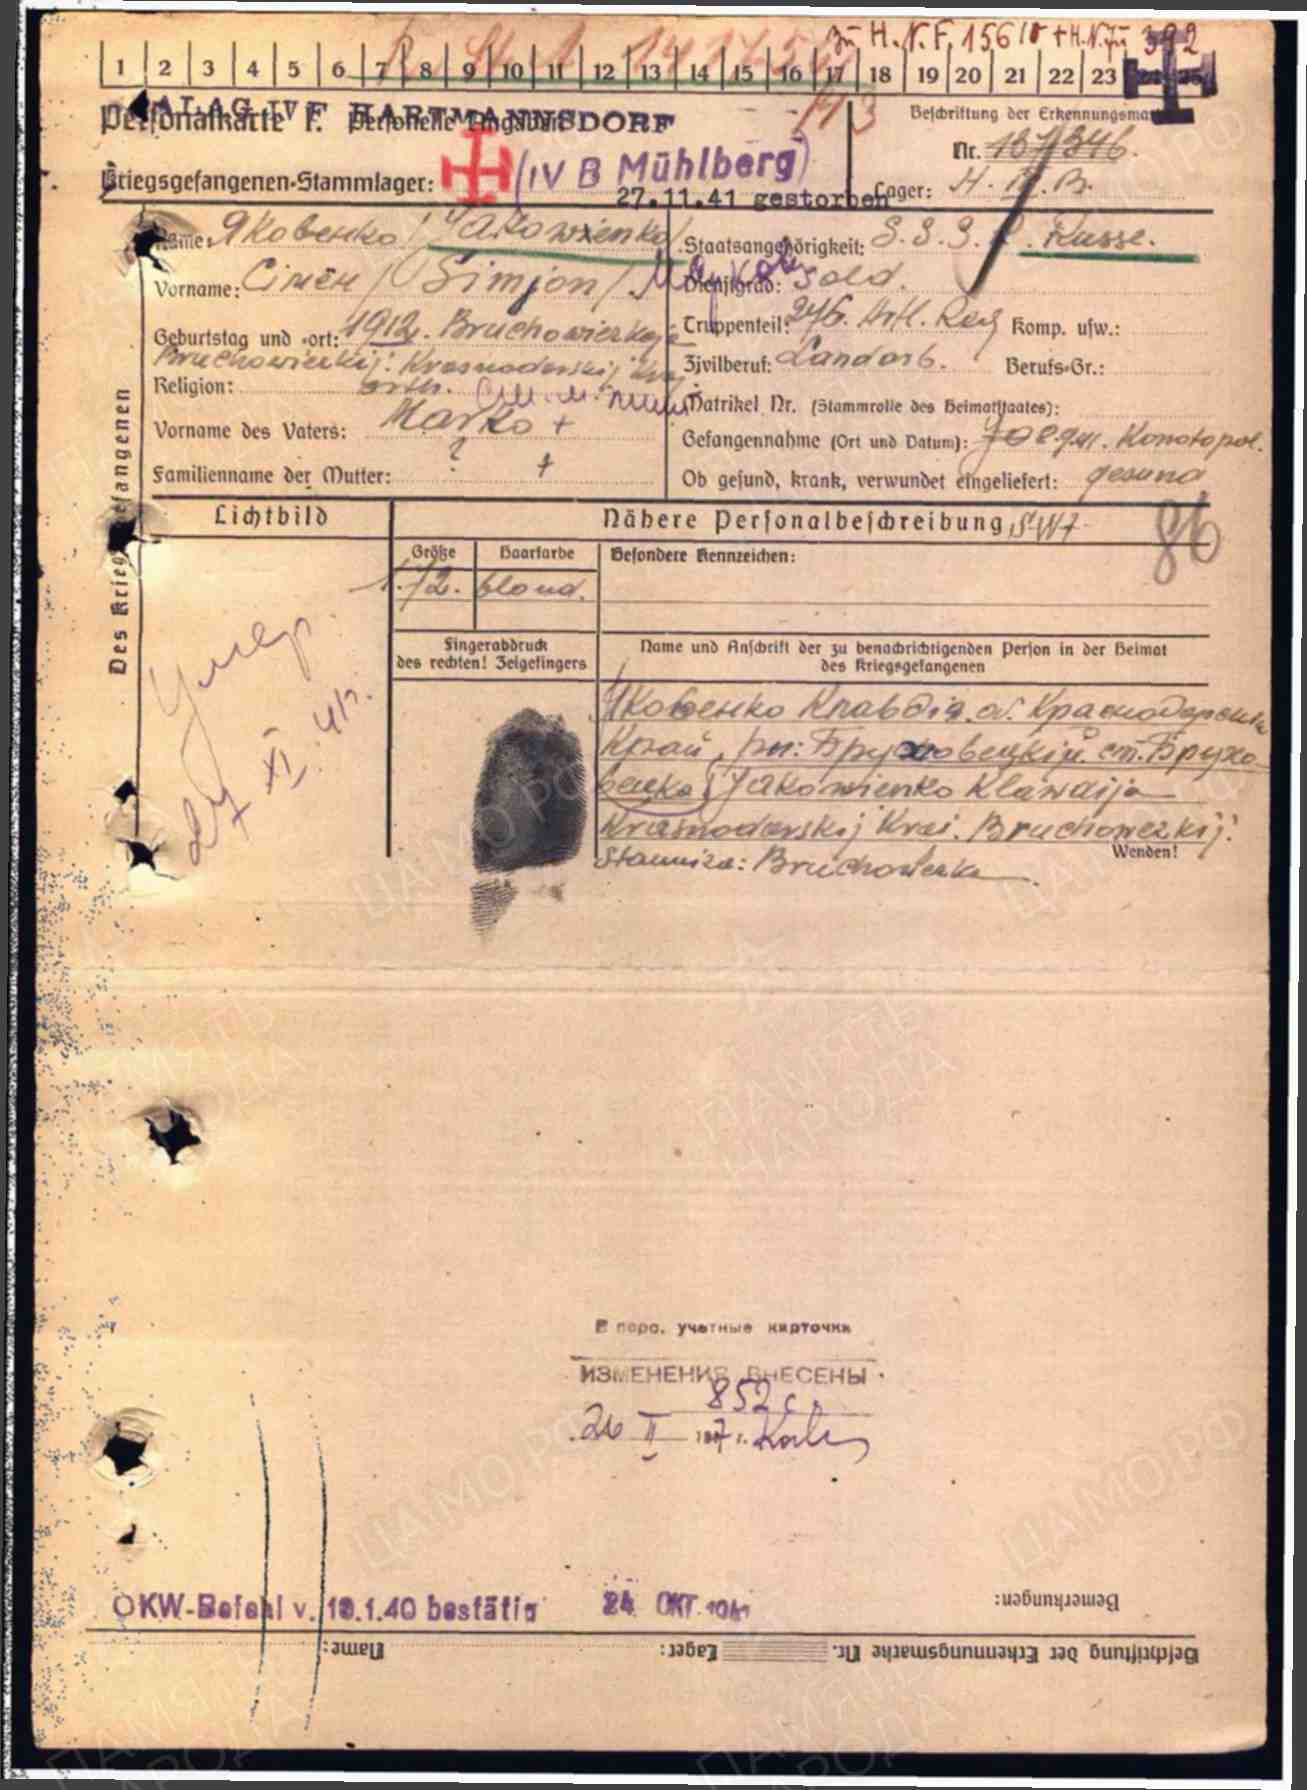 zu H. N. F. 15618 + H. N. zu 392
1 2 3 4 5 6 7 8 9 10 11 12 13 14 15 16 17 18 19 20 21 22 23 24 25
STALAG IV F HARTMANNSDORF
Personalkarte I: Personelle Angaben
Beschriftung der Erkennungsmarke
Nr. 137346.
Kriegsgefangenen-Stammlager: (IV B Mühlberg)
Lager:
27.11.41 gestorben
Des Kriegsgefangenen
Name: Яковенко / Jakowienko /
Staatsangehörigkeit: S. S. S. R. Russe.
Vorname: Сімен / Simjon /
Dienstgrad: Sold.
Geburtstag und -ort: 1912. Bruchowiezkaja
Truppenteil: 276. Artl. Reg Komp. usw.:
Bruchowierkij: Krasnodarskij Kraj.
Zivilberuf: Landarb. Berufs-Gr.:
Religion: orth.
Matrikel Nr. (Stammrolle des Heimatstaates):
Vorname des Vaters: Marko +
Gefangennahme (Ort und Datum): 8.9.41. Konotopol.
Familienname der Mutter: ? +
Ob gesund, krank, verwundet eingeliefert: gesund
Lichtbild
Nähere Personalbeschreibung
86
Größe Haarfarbe Besondere Kennzeichen:
1.72. blond.
Fingerabdruck
des rechten! Zeigefingers
Name und Anschrift der zu benachrichtigenden Person in der Heimat
des Kriegsgefangenen
Умер.
27 XI. 41г.
Яковенко Клавдія.
Край, рн: Бруховецкій. ст. Брухо
вецка / Jakowienko Klawdija
Krasnodarskij Krai. Bruchowezkij:
Wenden!
Staniza: Bruchowezka
В перс. учетные карточки
ИЗМЕНЕНИЯ ВНЕСЕНЫ
852с.
26 II 1947 г.
OKW-Befehl v. 19.1.40 bestätig 24. OKT. 1941
Bemerkungen:
Beschriftung der Erkennungsmarke Nr. Lager: Name:
ПАМЯТЬ НАРОДА
ЦАМО.РФ